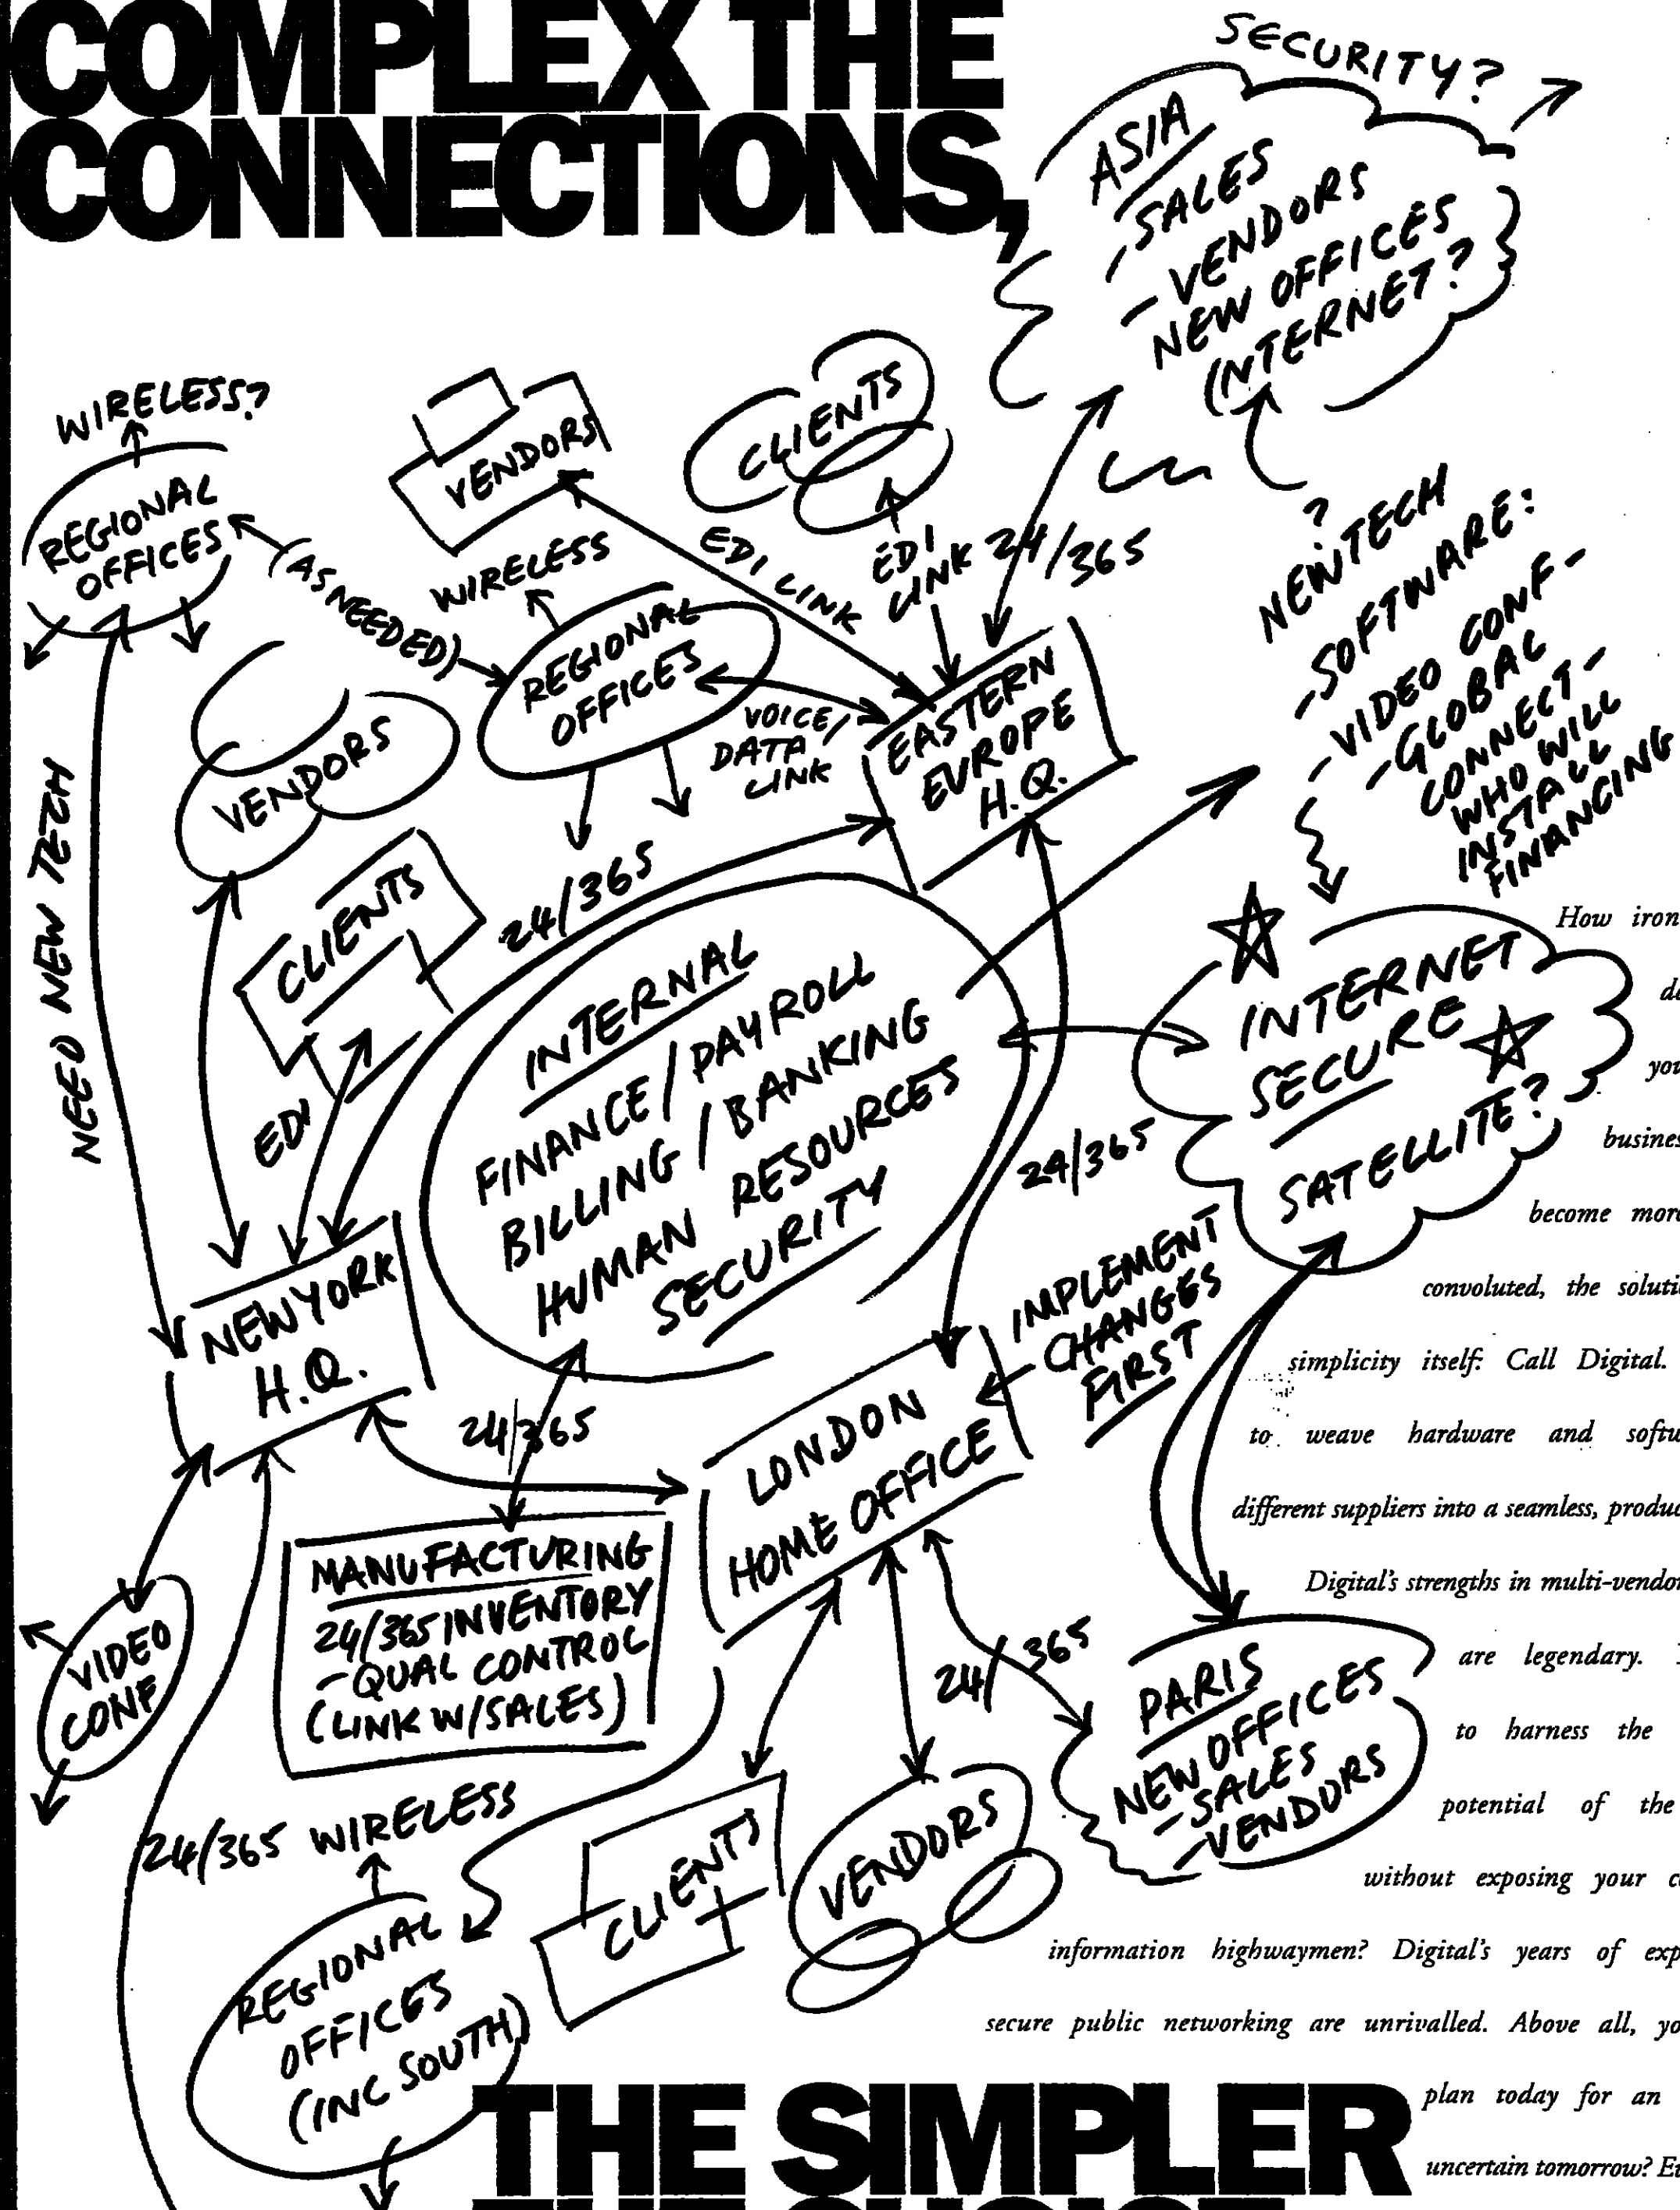 COMPLEX THE
CONNECTIONS,
SECURITY?
ASIA
- SALES
- VENDORS
NEW OFFICES
INTERNET?
WIRELESS?
REGIONAL
OFFICES
(AS NEEDED)
VENDORS
CLIENTS
EDI LINK
EDI
LINK
24/365
WIRELESS
REGIONAL
OFFICES
VOICE/
DATA
LINK
EASTERN
EUROPE
H.Q.
?
NEW TECH
- SOFTWARE:
- VIDEO CONF-
- GLOBAL
CONNECT-
WHO WILL
INSTALL
FINANCING
VENDORS
CLIENTS
24/365
NEED NEW TECH
EDI
INTERNAL
FINANCE/PAYROLL
BILLING/BANKING
HUMAN RESOURCES
SECURITY
INTERNET
SECURE
SATELLITE?
24/365
IMPLEMENT
CHANGES
FIRST
NEW YORK
H.Q.
24/365
LONDON
HOME OFFICE
MANUFACTURING
24/365 INVENTORY
- QUAL CONTROL
(LINK W/SALES)
VIDEO
CONF
24/365
PARIS
NEW OFFICES
- SALES
- VENDORS
24/365 WIRELESS
REGIONAL
OFFICES
(INC SOUTH)
CLIENTS
VENDORS
How iron
yo
busines
become more
convoluted, the soluti
simplicity itself: Call Digital.
to weave hardware and softw
different suppliers into a seamless, produc
Digital's strengths in multi-vendo
are legendary.
to harness the
potential of the
without exposing your c
information highwaymen? Digital's years of exp
secure public networking are unrivalled. Above all, yo
plan today for an
uncertain tomorrow?
THE SIMPLER
THE CHOICE